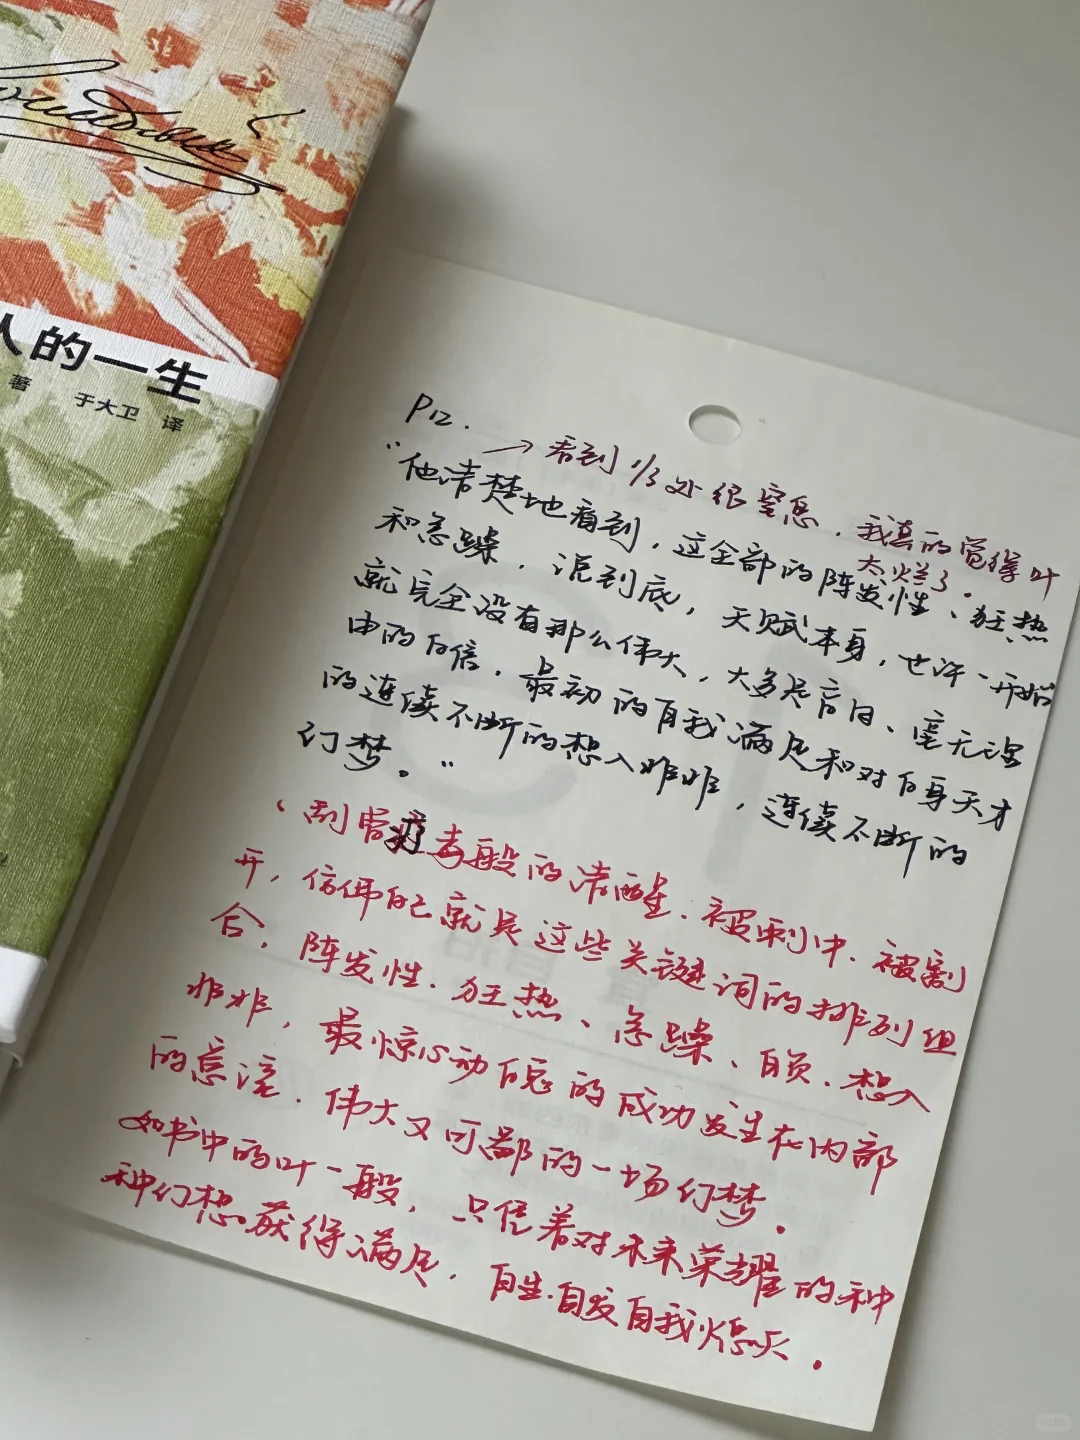 人的一生
著 于大卫 译
P12.
→看到1/3处很窒息,我真的觉得叶
太烂了。
“他清楚地看到,这全部的阵发性、狂热
和急躁,说到底,天赋本身,也许一开始
就完全没有那么伟大,大多是盲目、毫无理
由的自信,最初的自我满足和对自身天才
的连续不断的想入非非,连续不断的
幻梦。”
、刮骨疗毒般的清醒.被刺中.被割
开,仿佛自己就是这些关键词的排列组
合.阵发性.狂热、急躁、自负.想入
非非,最惊心动魄的成功发生在内部
的意淫.伟大又可鄙的一场幻梦。
如书中的叶一般,只凭着对未来荣耀的种
种幻想获得满足.自生.自发自我熄灭.